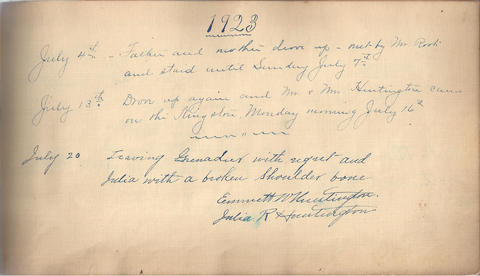 1923
July 4th - Father and mother drove up - met by Mr. Root
and staid until Sunday July 7th
July 13th. Drove up again and Mr & Mrs Huntington came
on the Kingston, Monday morning July 16th
July 20 Leaving Grenadier with regret and
Julia with a broken shoulder bone
Emmett W Huntington.
Julia R Huntington